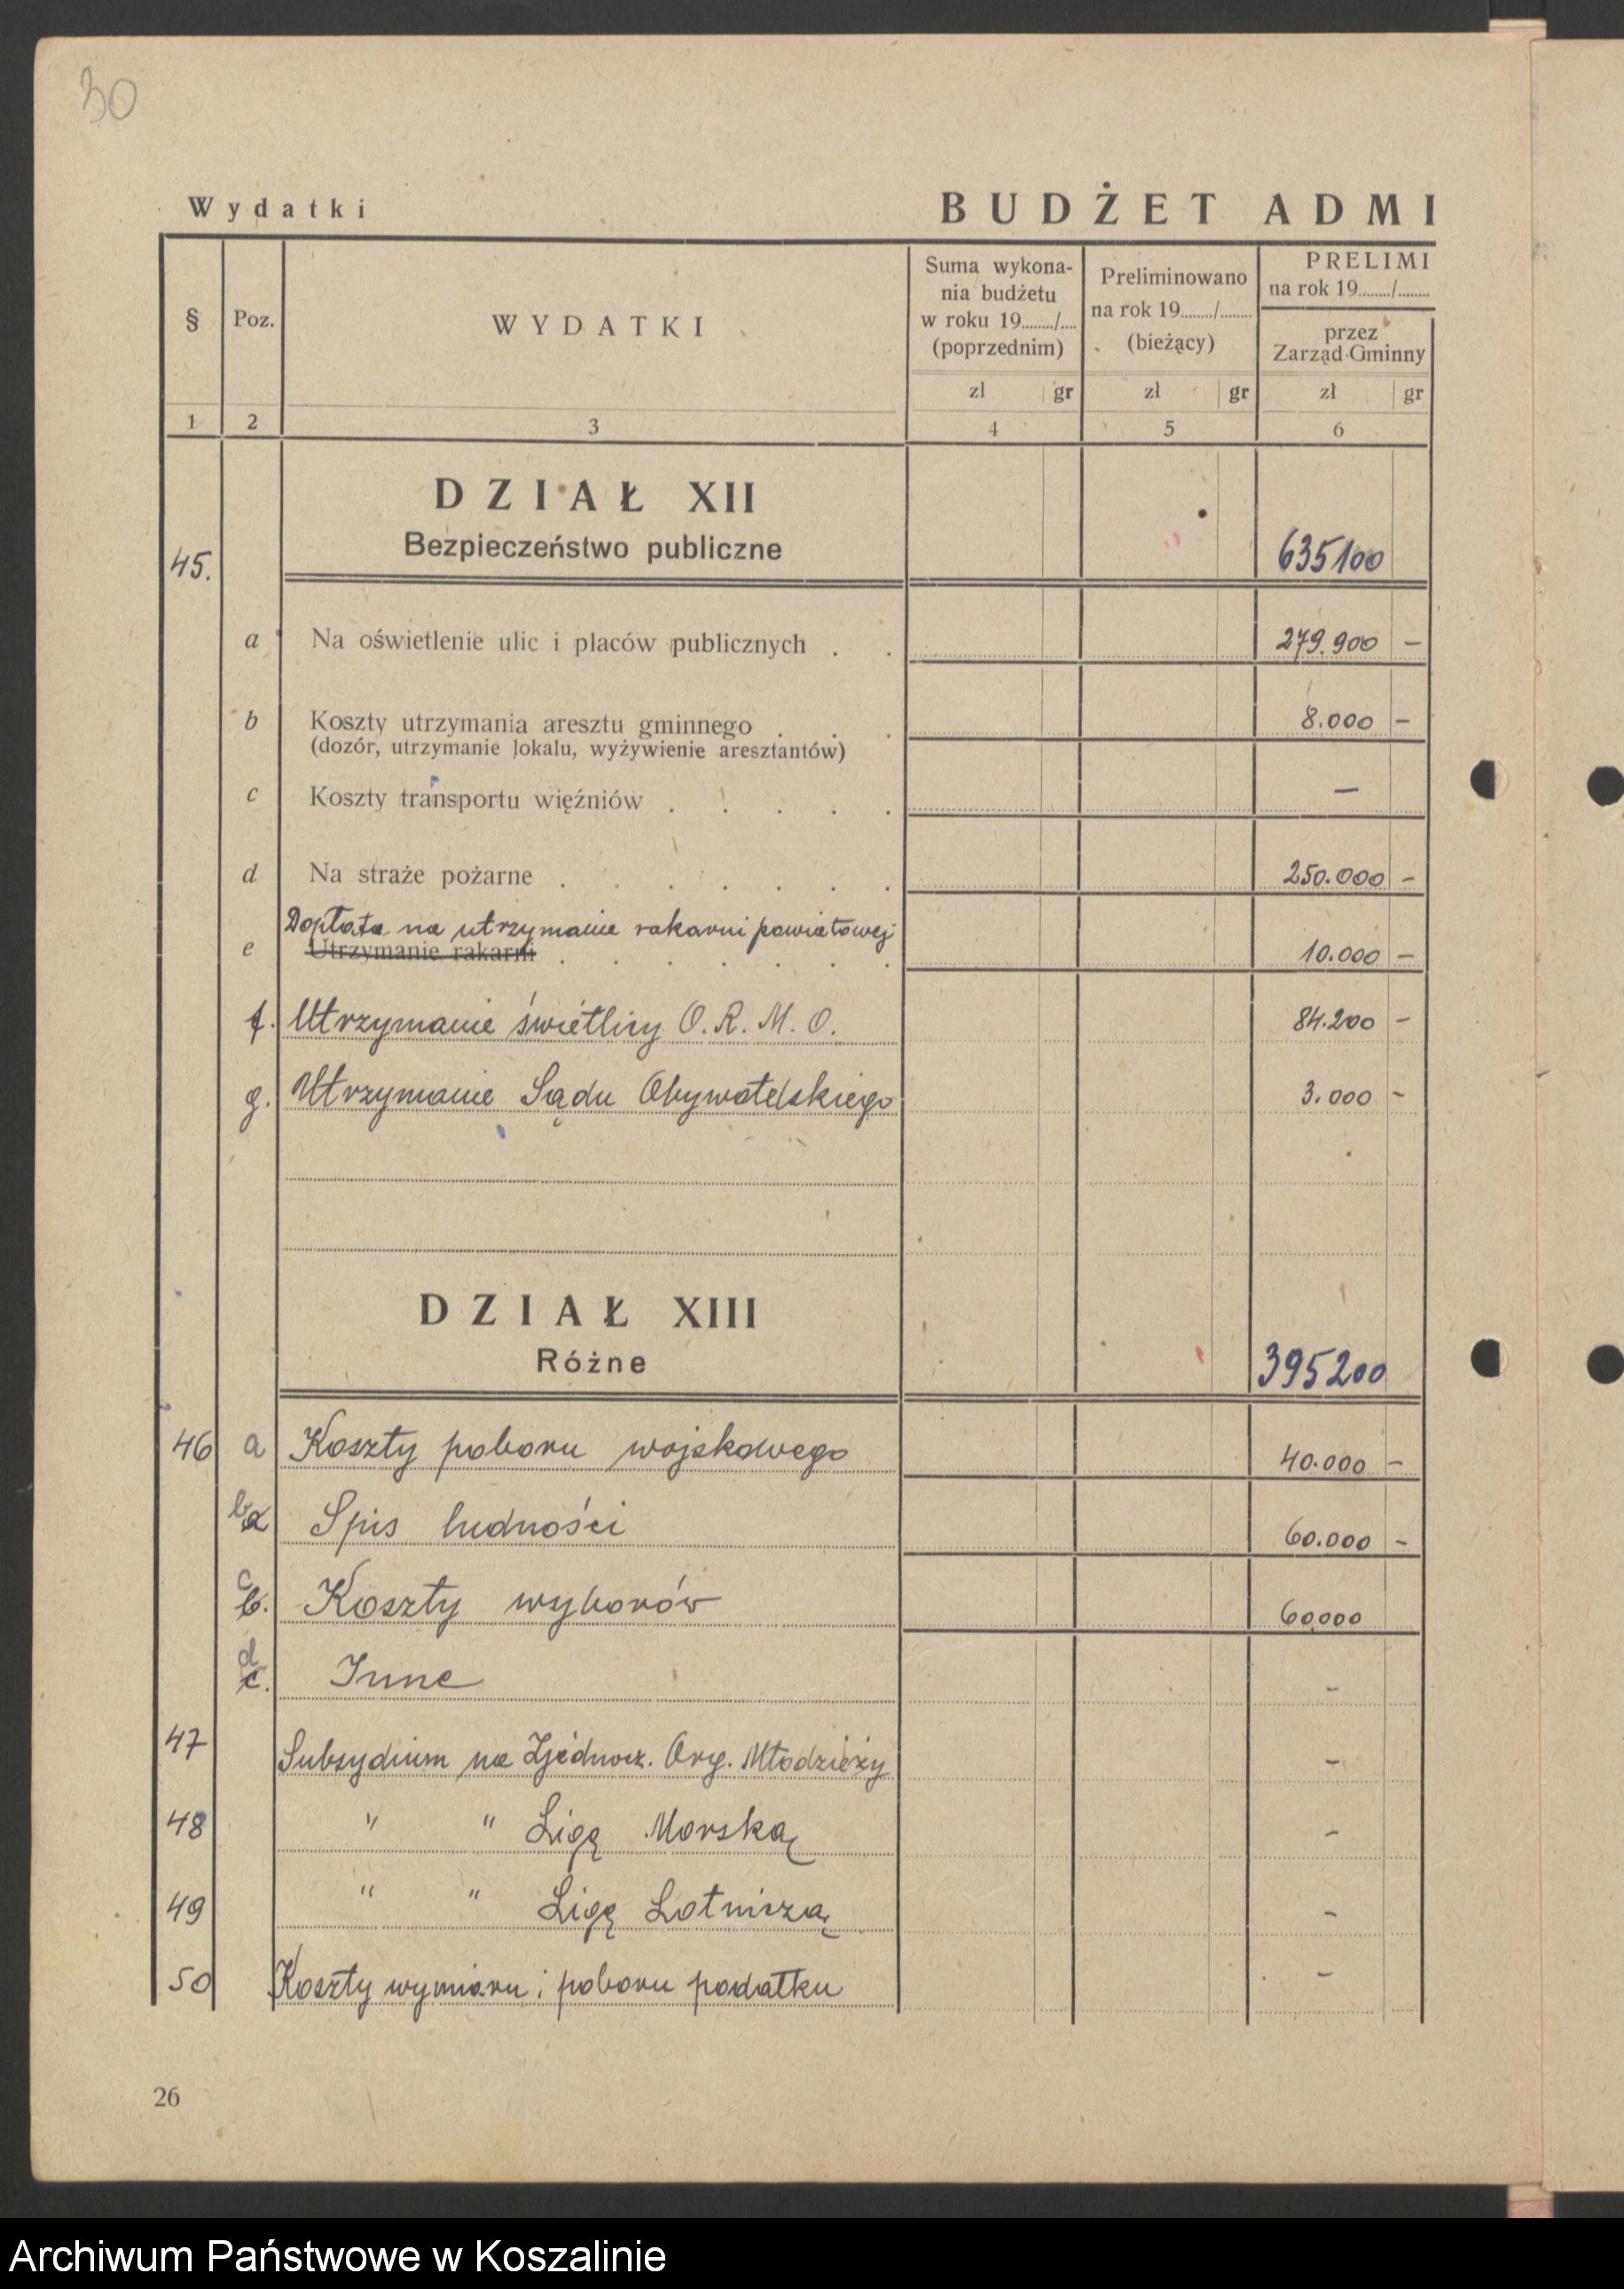 30
Wydatki BUDŻET ADMI
§ Poz. WYDATKI
Suma wykona-
nia budżetu
w roku 19......./....
(poprzednim)
Preliminowano
na rok 19......./.......
(bieżący)
PRELIMI
na rok 19......./.......
przez
Zarząd Gminny
zł gr zł gr zł gr
1 2 3 4 5 6
DZIAŁ XII
Bezpieczeństwo publiczne
45. 635100
a Na oświetlenie ulic i placów publicznych . . 279.900 –
b Koszty utrzymania aresztu gminnego . . . 8.000 –
(dozór, utrzymanie lokalu, wyżywienie aresztantów)
c Koszty transportu więźniów . . . . . —
d Na straże pożarne . . . . . . . 250.000 –
Dopłata na utrzymanie rakarni powiatowej
e Utrzymanie rakarni . . . . . . . 10.000 –
f. Utrzymanie świetlicy O.R.M.O. 84.200 –
g. Utrzymanie Sądu Obywatelskiego 3.000 –
DZIAŁ XIII
Różne
395200
46 a Koszty poboru wojskowego 40.000 –
b a Spis ludności 60.000 –
c b. Koszty wyborów 60.000
d c. Inne –
47 Subsydium na Zjednocz. Org. Młodzieży –
48 " " Ligę Morską –
49 " " Ligę Lotniczą –
50 Koszty wymiaru i poboru podatku –
26
Archiwum Państwowe w Koszalinie